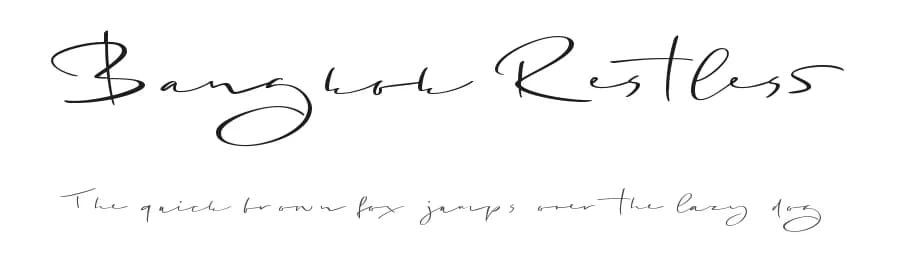 Bangkok Restless
The quick brown fox jumps over the lazy dog